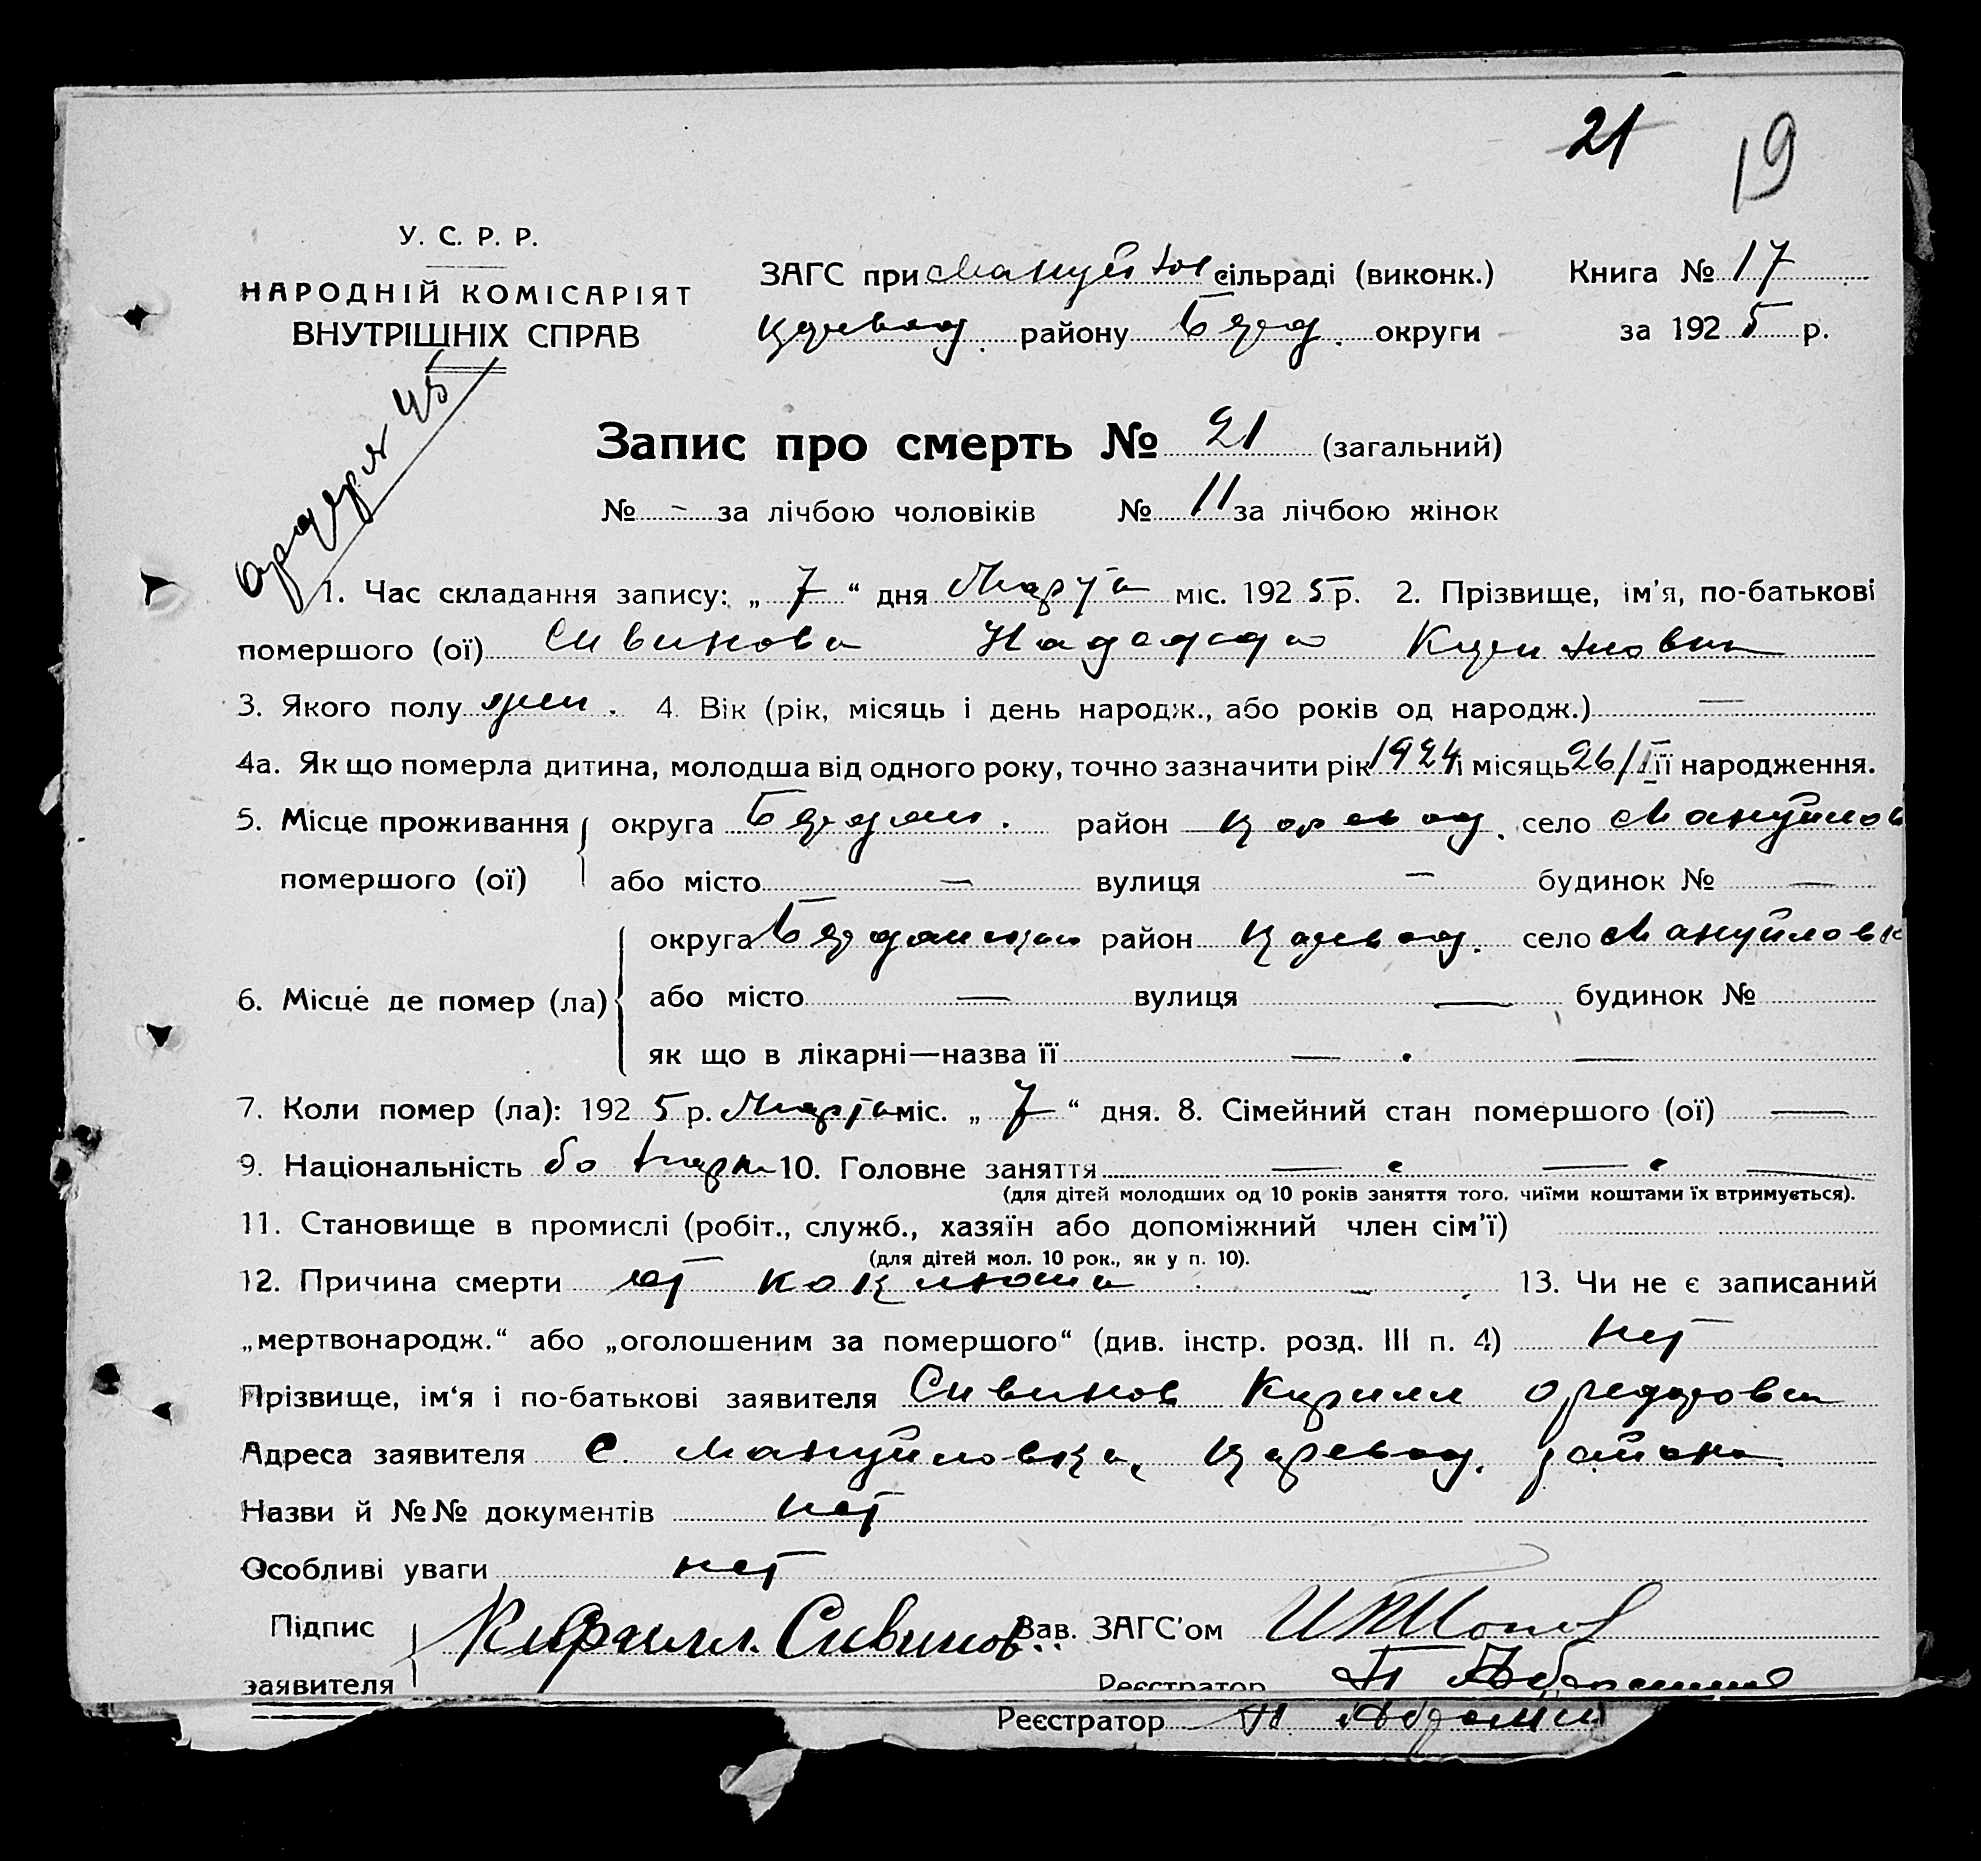 21
19
У. С. Р. Р.
НАРОДНІЙ КОМІСАРІЯТ
ВНУТРІШНІХ СПРАВ
ЗАГС при Мануйл сільраді (виконк.) Книга № 17
Царевод. району Берд. округи за 1925 р.
Запис про смерть № 21 (загальний)
№ - за лічбою чоловіків № 11 за лічбою жінок
1. Час складання запису: „ 7 “ дня Марта міс. 1925 р. 2. Прізвище, ім'я, по-батькові
помершого (ої) Сивинова Надежда
3. Якого полу жен. 4. Вік (рік, місяць і день народж., або років од народж.) —
4а. Як що померла дитина, молодша від одного року, точно зазначити рік 1924 і місяць 26/ її народження.
5. Місце проживання округа Бердян. район Царевод. село Мануйлов
помершого (ої) або місто — вулиця — будинок № —
округа район Царевод. село Мануйловк
6. Місце де помер (ла) або місто — вулиця — будинок №
як що в лікарні—назва її — . —
7. Коли помер (ла): 1925 р. Марта міс. „ 7 “ дня. 8. Сімейний стан помершого (ої) —
9. Національність болгарк 10. Головне заняття — —
(для дітей молодших од 10 років заняття того, чиїми коштами їх втримується).
11. Становище в промислі (робіт., служб., хазяїн або допоміжний член сім'ї)
(для дітей мол. 10 рок., як у п. 10).
12. Причина смерти от коклюша 13. Чи не є записаний
„мертвонародж.“ або „оголошеним за помершого“ (див. інстр. розд. III п. 4) нет
Прізвище, ім'я і по-батькові заявителя Сивинов Кирилл
Адреса заявителя с. Мануйловка, Царевод. района
Назви й №№ документів нет
Особливі уваги нет
Підпис Кирилл Сивинов Зав. ЗАГС'ом
заявителя Реєстратор
Реєстратор